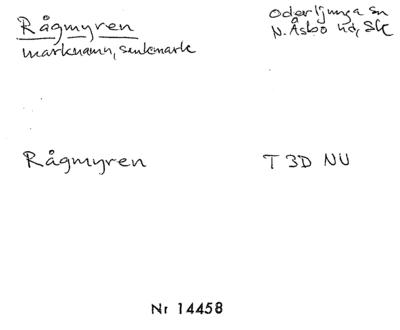 Rågmyren
marknamn, sankmark
Oderljunga sn
N. Åsbo hd, Sk
Rågmyren
T 3D NU
Nr 14458